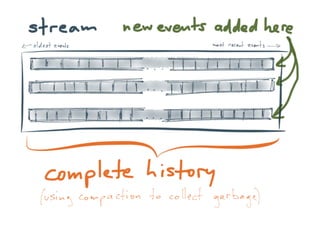 stream new events added here
oldest events most recent events
complete history
(using compaction to collect garbage)